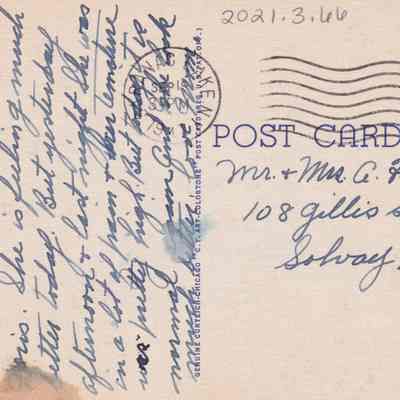 2021.3.66
POST CARD
Mr. + Mrs. A.
108 Gillis
Solvay,
GENUINE CURTEICH-CHICAGO "C.T. ART-COLORTONE" POST CARD (REG. U.S. PAT. OFF.)
She is feeling much
better today. But yesterday
afternoon & last night she was
in a lot of pain & her temperature
was pretty high. But today it is
normal again and